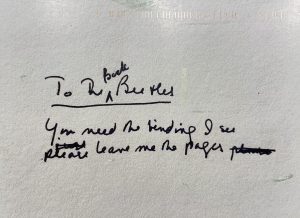 To The Book Beetles
You need the binding I see
please leave me the pages please